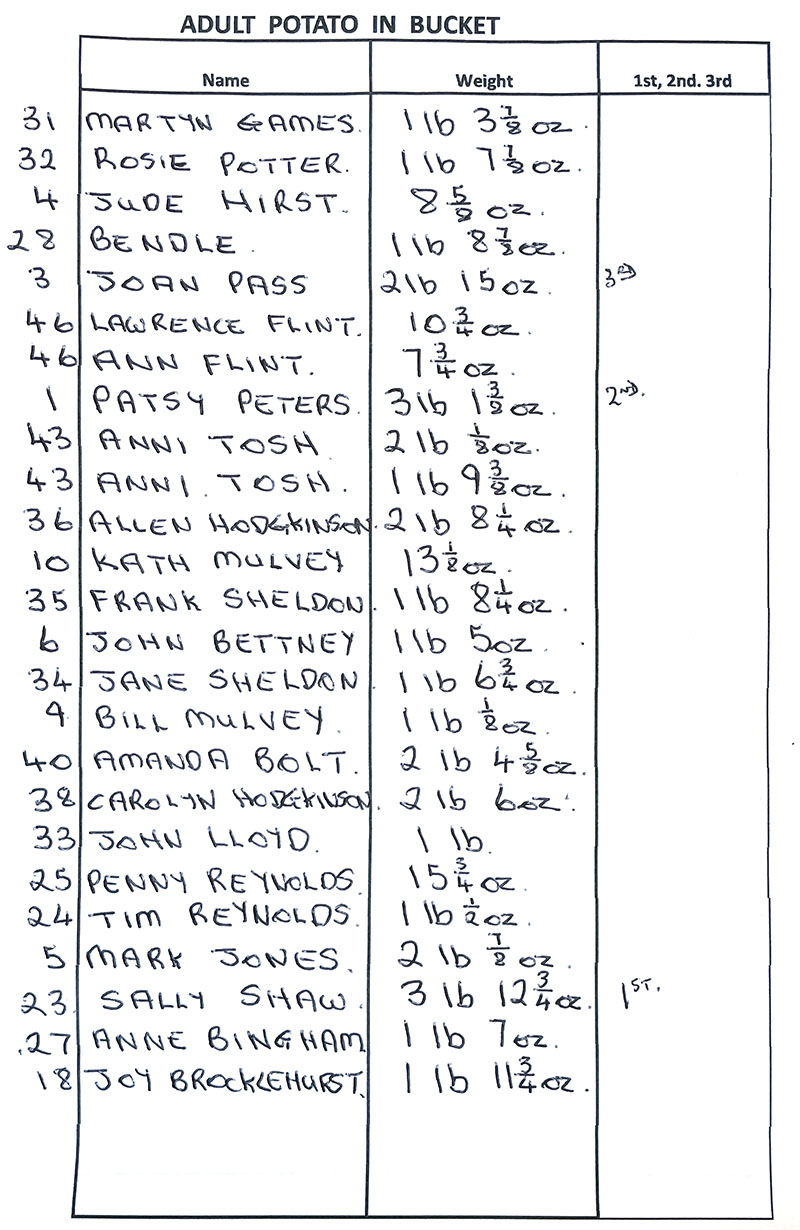 ADULT POTATO IN BUCKET
Name Weight 1st, 2nd. 3rd
31 MARTYN GAMES. 1 lb 3 7/8 oz.
32 ROSIE POTTER. 1 lb 7 7/8 oz.
4 JUDE HIRST. 8 5/8 oz.
28 BENDLE. 1 lb 8 7/8 oz.
3 JOAN PASS 2 lb 15 oz. 3rd
46 LAWRENCE FLINT. 10 3/4 oz.
46 ANN FLINT. 7 3/4 oz.
1 PATSY PETERS. 3 lb 1 3/8 oz. 2nd.
43 ANNI TOSH 2 lb 1/8 oz.
43 ANNI. TOSH. 1 lb 9 3/8 oz.
36 ALLEN HODGKINSON. 2 lb 8 1/4 oz.
10 KATH MULVEY 13 1/8 oz.
35 FRANK SHELDON. 1 lb 8 1/4 oz.
6 JOHN BETTNEY 1 lb 5 oz.
34 JANE SHELDON 1 lb 6 3/4 oz.
9 BILL MULVEY. 1 lb 1/8 oz.
40 AMANDA BOLT. 2 lb 4 5/8 oz.
38 CAROLYN HODGKINSON. 2 lb 6 oz.
33 JOHN LLOYD. 1 lb.
25 PENNY REYNOLDS. 15 3/4 oz.
24 TIM REYNOLDS. 1 lb 1/2 oz.
5 MARK JONES. 2 lb 7/8 oz.
23. SALLY SHAW. 3 lb 12 3/4 oz. 1ST.
.27 ANNE BINGHAM 1 lb 7 oz.
18 JOY BROCKLEHURST. 1 lb 11 3/4 oz.